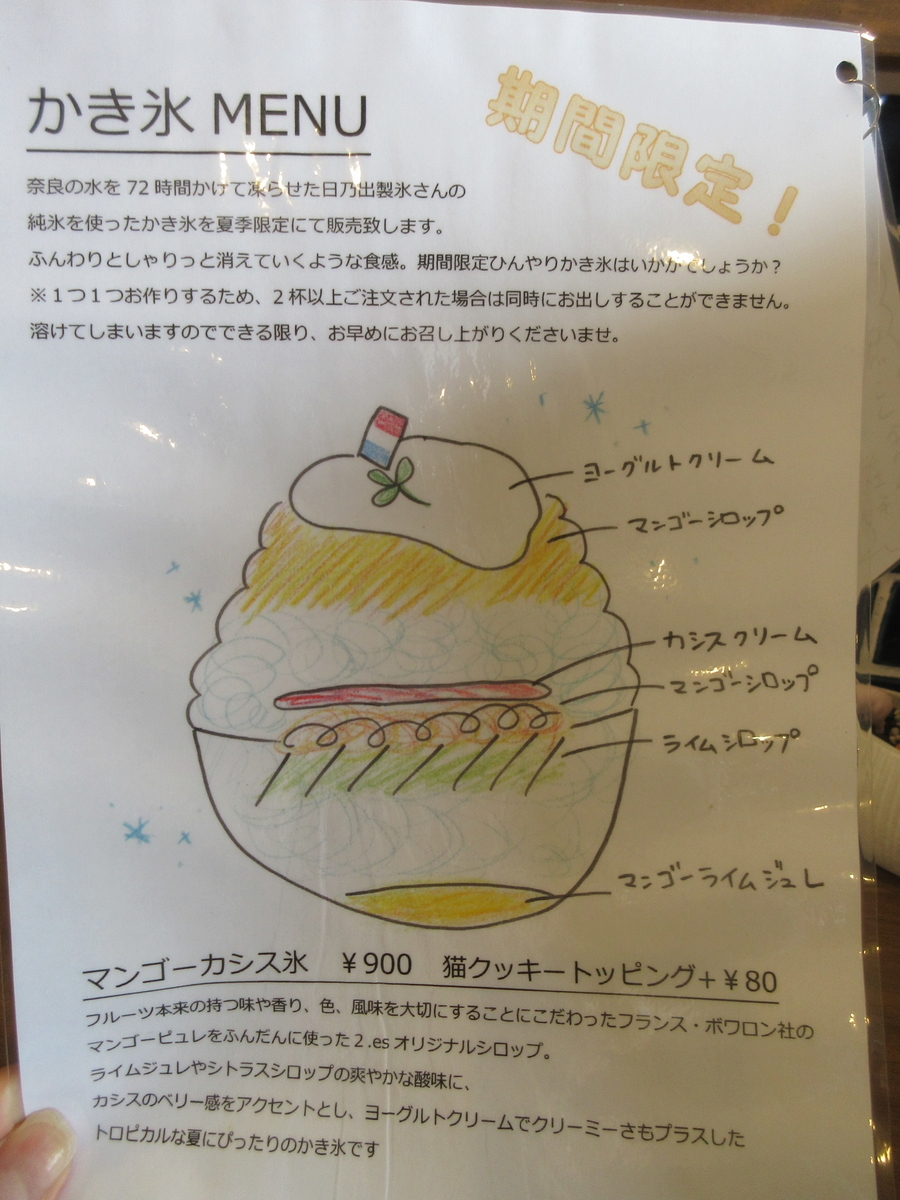 かき氷 MENU
期間限定!
奈良の水を 72 時間かけて凍らせた日乃出製氷さんの
純氷を使ったかき氷を夏季限定にて販売致します。
ふんわりとしゃりっと消えていくような食感。期間限定ひんやりかき氷はいかがでしょうか?
※1つ1つお作りするため、2杯以上ご注文された場合は同時にお出しすることができません。
溶けてしまいますのでできる限り、お早めにお召し上がりくださいませ。
ヨーグルトクリーム
マンゴーシロップ
カシスクリーム
マンゴーシロップ
ライムシロップ
マンゴーライムジュレ
マンゴーカシス氷 ¥900 猫クッキートッピング+¥80
フルーツ本来の持つ味や香り、色、風味を大切にすることにこだわったフランス・ボワロン社の
マンゴーピュレをふんだんに使った2.esオリジナルシロップ。
ライムジュレやシトラスシロップの爽やかな酸味に、
カシスのベリー感をアクセントとし、ヨーグルトクリームでクリーミーさもプラスした
トロピカルな夏にぴったりのかき氷です